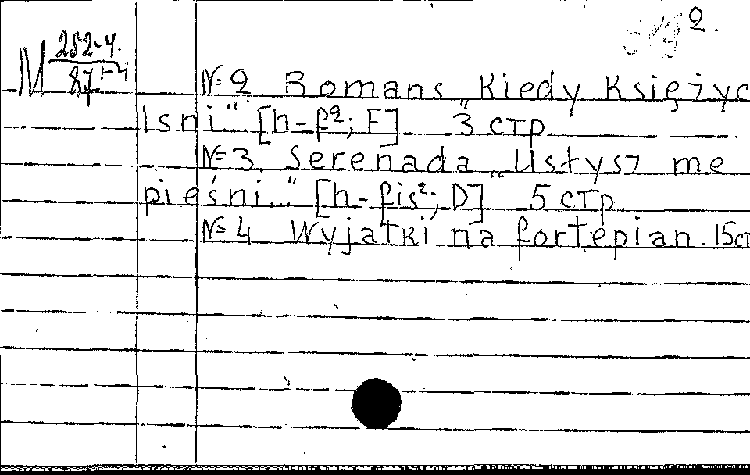 2.
M 252-4.
87-4
№ 2 Romans „Kiedy Księżyc
lsni" [h-f²; F] 3 стр
№ 3. Serenada „Usłysz me
pieśni..." [h-fis²; D] 5 стр
№ 4 Wyjatki na fortepian. 15ст